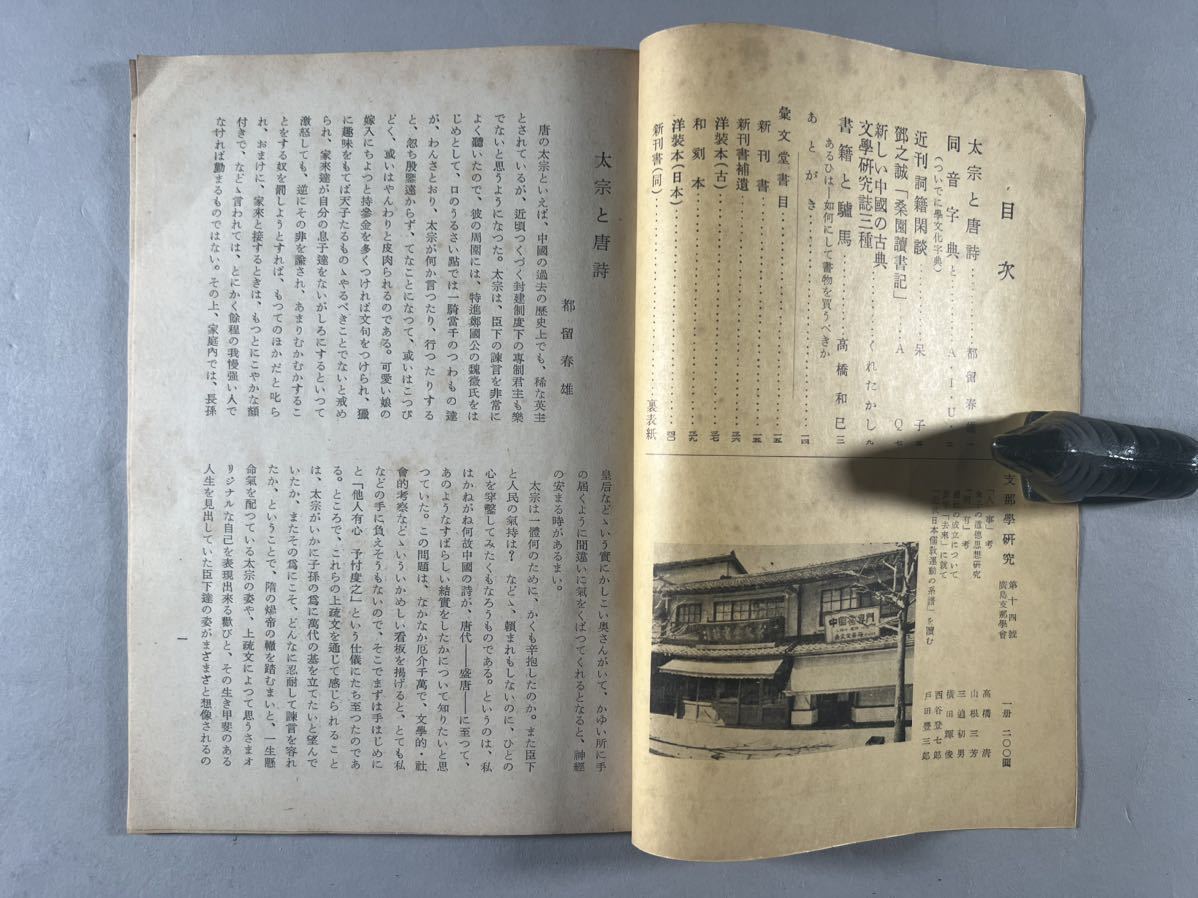 目次
太宗と唐詩……都留春雄 一
同音字典と……A・I・U
(ついでに學文化字典)
近刊詞籍閑談……呆子
鄧之誠「桑園讀書記」……A Q 七
新しい中國の古典
文學研究誌三種……くれたかし 九
書籍と驢馬……高橋和巳 三
あるひは―如何にして書物を買うべきか
あとがき……一四
彙文堂書目
新刊書……一五
新刊書補遺……
和刻本……
洋裝本(古)……
洋裝本(日本)……
新刊書(同)……裏表紙
支那學研究 第十四號 廣島支那學會 一册 二〇〇圓
「人事」考 高橋清
の道德思想研究 山根三芳
「考 三迫初男
の成立について 橫田輝俊
「去來」に就て 西谷登七郎
「日本儒敎運動の系譜」を讀む 戸田豐三郎
中國書專門
太宗と唐詩
都留春雄
唐の太宗といえば、中國の過去の歷史上でも、稀な英主
とされているが、近頃つくづく封建制度下の專制君主も樂
でないと思うようになつた。太宗は、臣下の諫言を非常に
よく聽いたので、彼の周圍には、特進鄭國公の魏徵氏をは
じめとして、口のうるさい點では一騎當千のつわもの達
が、わんさとおり、太宗が何か言つたり、行つたりする
と、忽ち殷鑒遠からず、てなことになつて、或いはこつぴ
どく、或いはやんわりと皮肉られるのである。可愛い娘の
嫁入にちよつと持參金を多くつければ文句をつけられ、獵
に趣味をもてば天子たるものゝやるべきことでないと戒め
られ、家來達が自分の息子達をないがしろにするといつて
激怒しても、逆にその非を諭され、あまりむかむかするこ
とをする奴を罰しようとすれば、もつてのほかだと叱ら
れ、おまけに、家來と接するときは、もつとにこやかな額
付きで、などゝ言われては、とにかく餘程の我慢强い人で
なければ勤まるものではない。その上、家庭內では、長孫
皇后などゝいう實にかしこい奥さんがいて、かゆい所に手
の屆くように間違いに氣をくばつてくれるとなると、神經
の安まる時があるまい。
太宗は一體何のために、かくも辛抱したのか。また臣下
と人民の氣持は？ などゝ、賴まれもしないのに、ひとの
心を穿鑿してみたくもなろうものである。というのは、私
はかねがね何故中國の詩が、唐代――盛唐――に至つて、
あのようなすばらしい結實をしたかについて知りたいと思
つていた。この問題は、なかなか厄介千萬で、文學的・社
會的考察などゝいういかめしい看板を揭げると、とても私
などの手に負えそうもないので、そこでまずは手はじめに
と「他人有心 予忖度之」という仕儀にたち至つたのであ
る。ところで、これらの上疏文を通じて感じられること
は、太宗がいかに子孫の爲に萬代の基を立てたいと望んで
いたか、またその爲にこそ、どんなに忍耐して諫言を容れ
たか、ということで、隋の煬帝の轍を踏むまいと、一生懸
命氣を配つている太宗の姿や、上疏文によつて思うさまオ
リジナルな自己を表現出來る歡びと、その生き甲斐のある
人生を見出していた臣下達の姿がまざまざと想像されるの
一